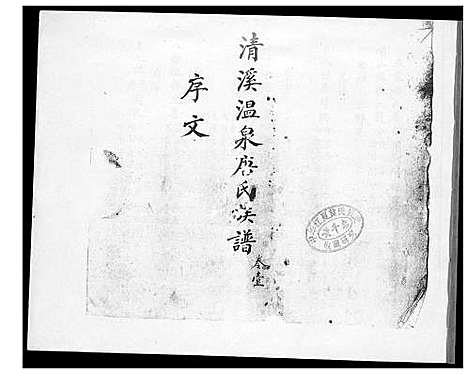 清溪温泉詹氏族譜
卷壹
序文